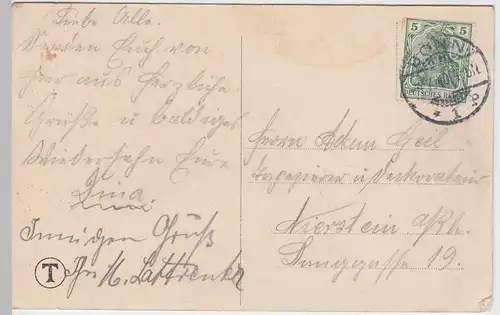 Liebe Alle.
Senden Euch von
hier aus herzliche
Grüße u baldiges
Wiedersehn Eure
Dina.
Innigen Gruß
Ihr H.
T
5 5
DEUTSCHES REICH
BONN
* 1
Herrn Adam Geil
Tapezierer u Dekorateur
Nierstein a/Rh.
Langgasse 19.